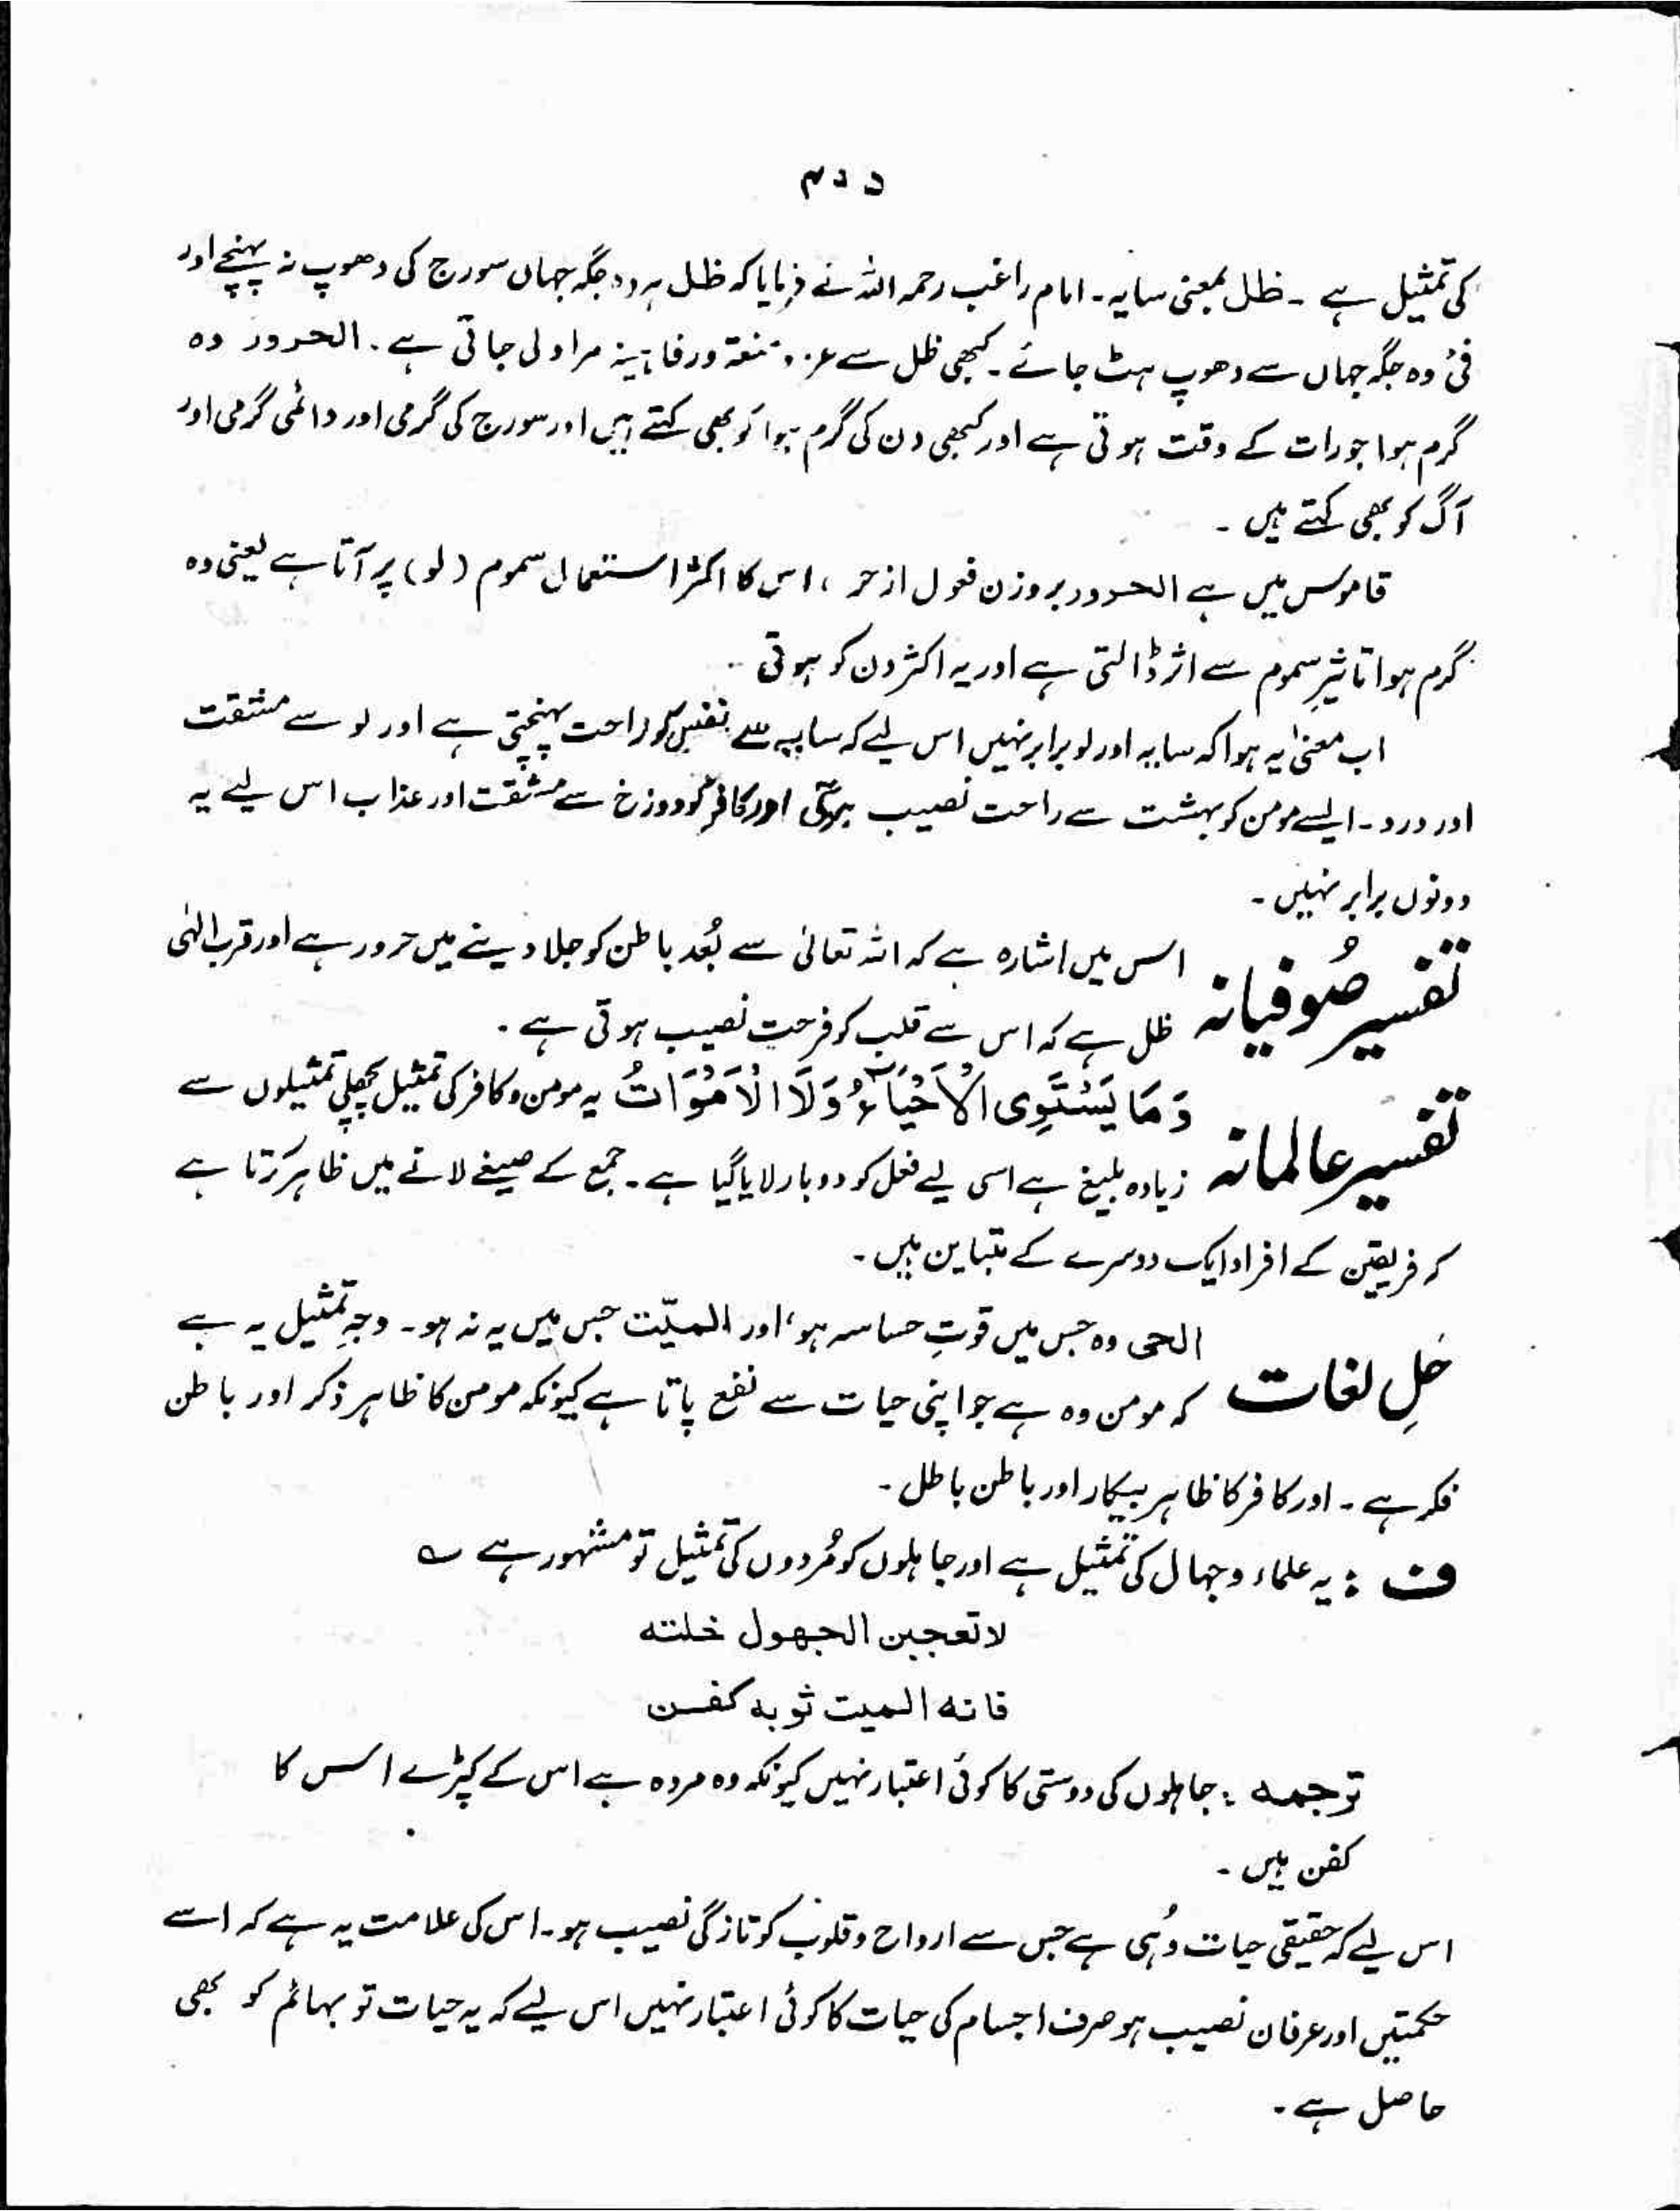 ۴۵۵
کی تمثیل ہے ۔ ظل بمعنی سایہ۔ امام راغب رحمہ اللہ نے فرمایا کہ ظل ہر وہ جگہ جہاں سورج کی دھوپ نہ پہنچے اور
فئ وہ جگہ جہاں سے دھوپ ہٹ جائے۔ کبھی ظل سے عز و منعۃ ورفاہیۃ مراد لی جاتی ہے ۔ الحرور وہ
گرم ہوا جو رات کے وقت ہوتی ہے اور کبھی دن کی گرم ہوا کو بھی کہتے ہیں اور سورج کی گرمی اور دائمی گرمی اور
آگ کو بھی کہتے ہیں ۔
قاموس میں ہے الحرور بروزن فعول از حر ، اس کا اکثر استعمال سموم (لو) پر آتا ہے یعنی وہ
گرم ہوا تاثیرِ سموم سے اثر ڈالتی ہے اور یہ اکثر دن کو ہوتی
اب معنیٰ یہ ہوا کہ سایہ اور لو برابر نہیں اس لیے کہ سایہ سے نفس کو راحت پہنچتی ہے اور لو سے مشقت
اور درد۔ ایسے مومن کو بہشت سے راحت نصیب ہوگی اور کافر کو دوزخ سے مشقت اور عذاب اس لیے یہ
دونوں برابر نہیں ۔
تفسیر صُوفیانہ اس میں اشارہ ہے کہ اللہ تعالیٰ سے بُعد باطن کو جلا دینے میں حرور ہے اور قرب الٰہی
ظل ہے کہ اس سے قلب کو فرحت نصیب ہوتی ہے ۔
تفسیر عالمانہ وَمَا يَسْتَوِى الْاَحْيَآءُ وَلَا الْاَمْوَاتُ یہ مومن و کافر کی تمثیل پچھلی تمثیلوں سے
زیادہ بلیغ ہے اسی لیے فعل کو دوبار لایا گیا ہے ۔ جمع کے صیغے لانے میں ظاہر کرتا ہے
کہ فریقین کے افراد ایک دوسرے کے متباین ہیں ۔
حَلِ لغات الحی وہ جس میں قوتِ حساسہ ہو، اور المیّت جس میں یہ نہ ہو۔ وجہِ تمثیل یہ ہے
کہ مومن وہ ہے جو اپنی حیات سے نفع پاتا ہے کیونکہ مومن کا ظاہر ذکر اور باطن
فکر ہے ۔ اور کافر کا ظاہر بیکار اور باطن باطل ۔
ف : یہ علماء و جہال کی تمثیل ہے اور جاہلوں کو مُردوں کی تمثیل تو مشہور ہے ؎
لا تعجبن الجهول خلته
فانه الميت ثوبه كفن
ترجمہ : جاہلوں کی دوستی کا کوئی اعتبار نہیں کیونکہ وہ مردہ ہے اس کے کپڑے اس کا
کفن ہیں ۔
اس لیے کہ حقیقی حیات وُہی ہے جس سے ارواح و قلوب کو تازگی نصیب ہو۔ اس کی علامت یہ ہے کہ اسے
حکمتیں اور عرفان نصیب ہو صرف اجسام کی حیات کا کوئی اعتبار نہیں اس لیے کہ یہ حیات تو بہائم کو بھی
حاصل ہے ۔